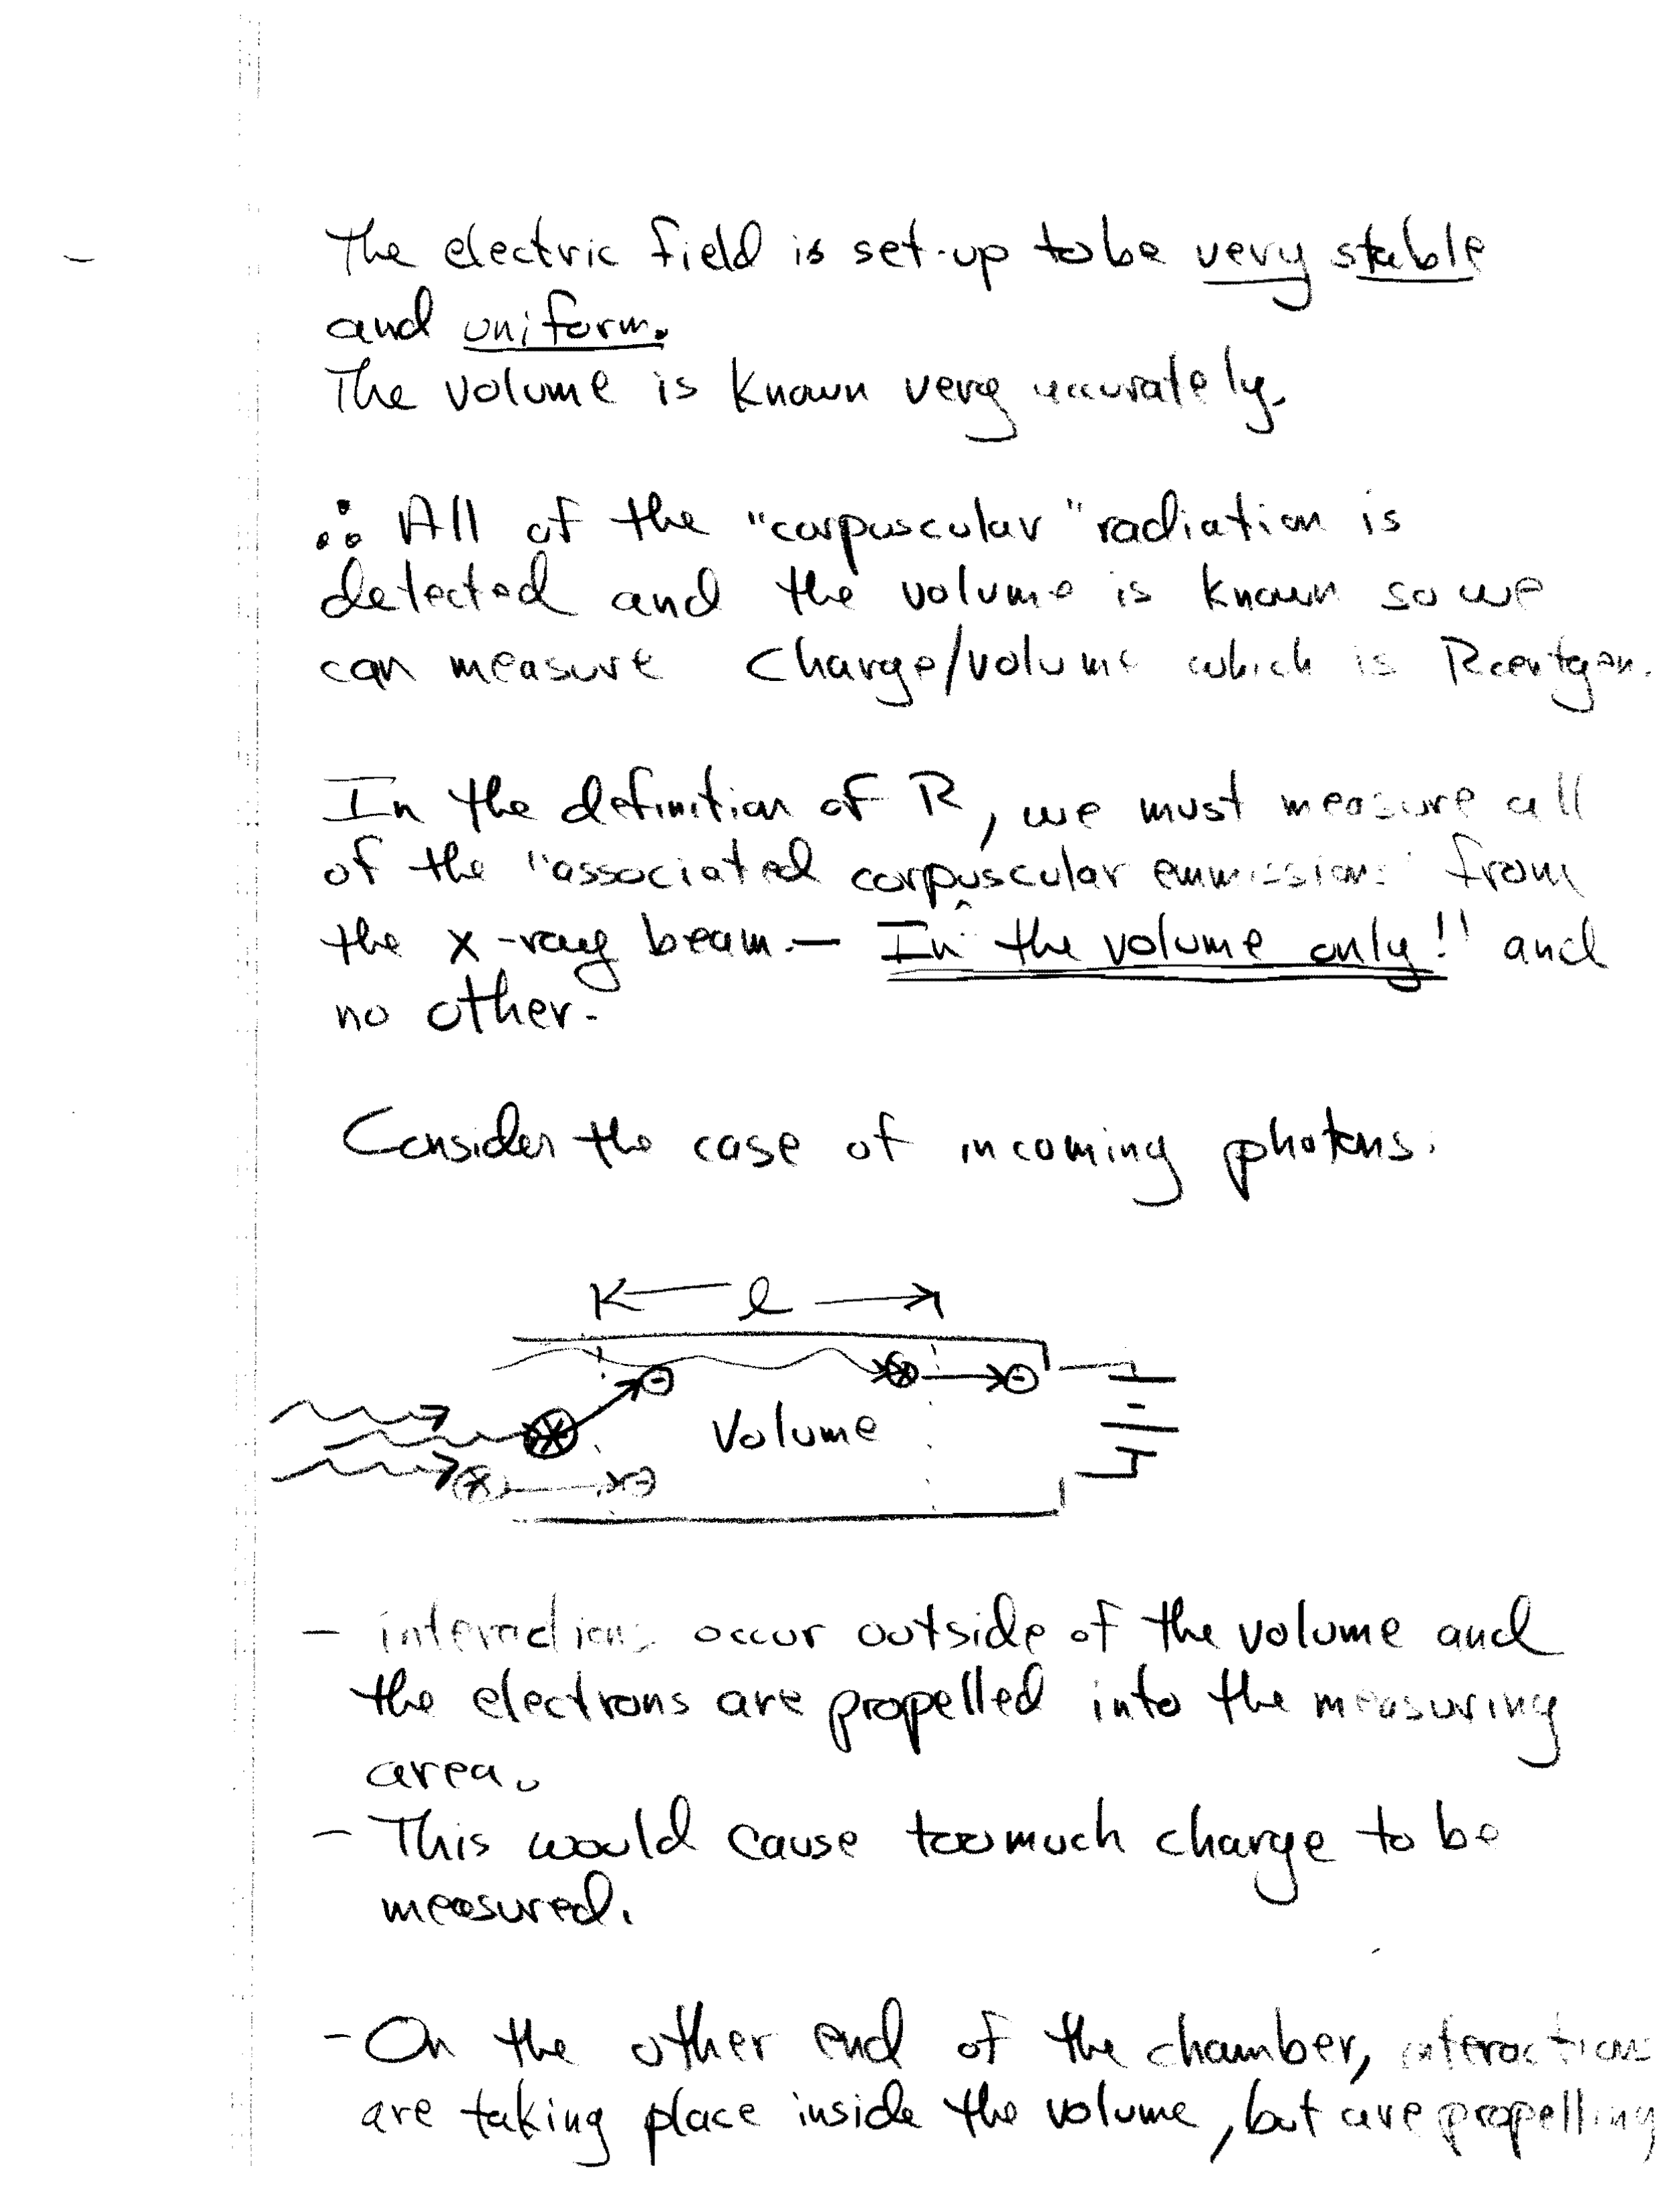 The electric field is set-up to be very stable
and uniform.
The volume is known very accurately.
∴ All of the "corpuscular" radiation is
detected and the volume is known so we
can measure Charge/volume which is Roentgen.
In the definition of R, we must measure all
of the "associated corpuscular emmissions" from
the x-ray beam. — In the volume only!! and
no other.
Consider the case of incoming photons.
l
Volume
- interactions occur outside of the volume and
the electrons are propelled into the measuring
area.
- This would cause too much charge to be
measured.
- On the other end of the chamber, interactions
are taking place inside the volume, but are propelling